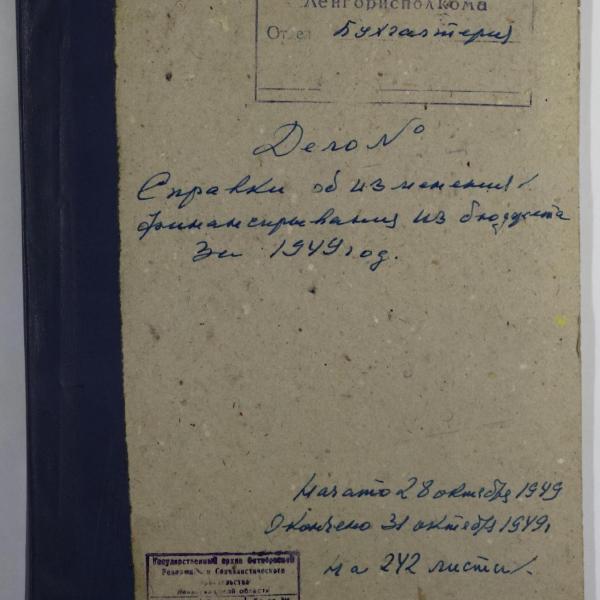 Ленгорисполкома
Отдел Бухгалтерия
Дело №
Справки об изменениях
финансирывания из бюджета
За 1949 год.
Начато 28 октября 1949
Окончено 31 октября 1949г
на 242 листах.
Государственный архив Октябрьской
Революции и Социалистического
строительства
Ленинградской области